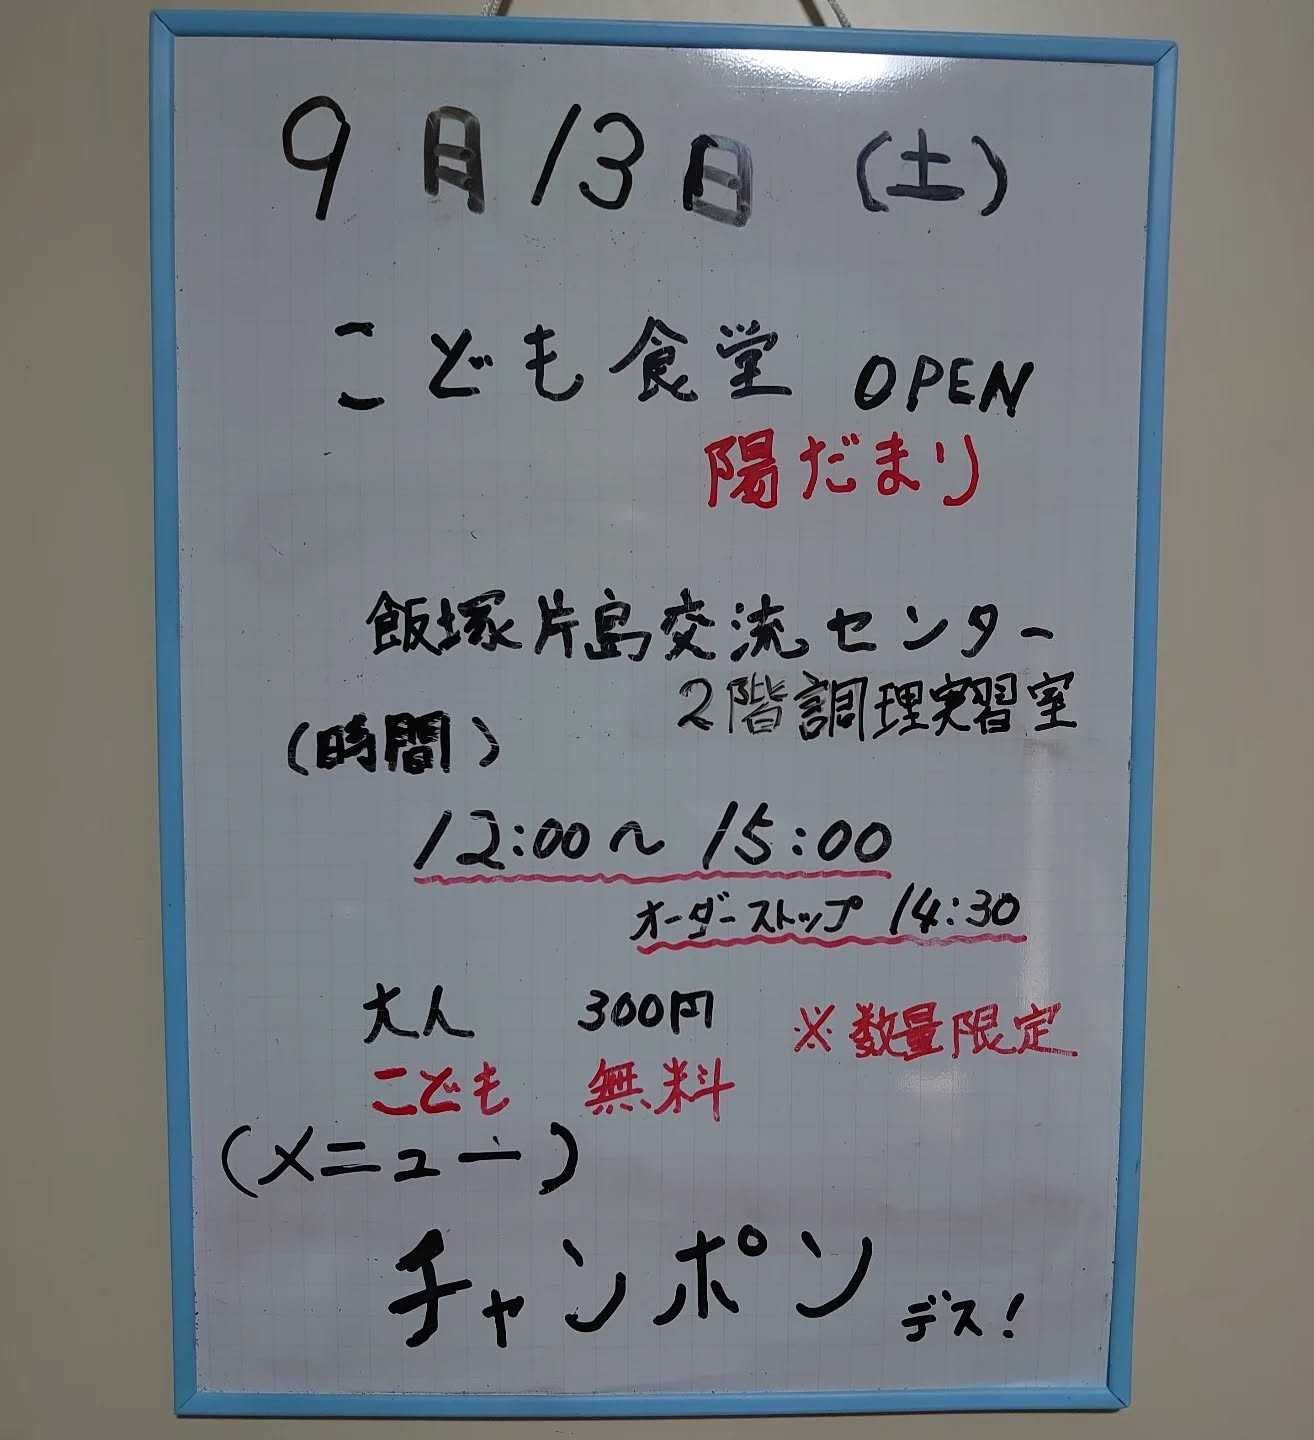 9月13日 (土)
こども食堂 OPEN
陽だまり
飯塚片島交流センター
2階調理実習室
(時間)
12:00〜15:00
オーダーストップ 14:30
大人 300円
※数量限定
こども 無料
(メニュー)
チャンポン デス!